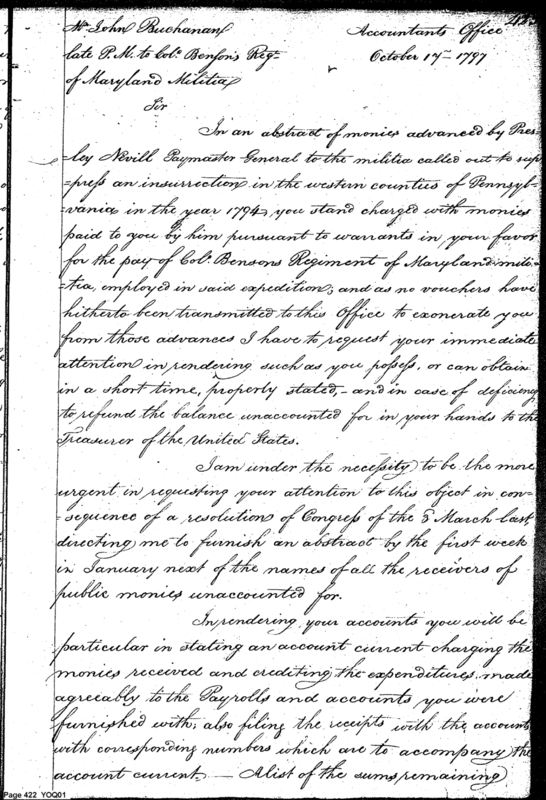 Mr. John Buchanan
late P. M. to Colo. Benson's Regt.
of Maryland Militia
Accountants Office
October 17th 1797
Sir
In an abstract of monies advanced by Pres-
-ley Nevill Paymaster General to the militia called out to sup
-press an insurrection in the western counties of Pennsyl-
-vania in the year 1794, you stand charged with monies
paid to you by him pursuant to warrants in your favor
for the pay of Colo. Bensons Regiment of Maryland mili-
-tia, employed in said expedition; and as no vouchers have
hitherto been transmitted to this Office to exonerate you
from those advances I have to request your immediate
attention in rendering such as you possess, or can obtain
in a short time, properly stated, - and in case of deficiency
to refund the balance unaccounted for in your hands to the
Treasurer of the United States.
I am under the necessity to be the more
urgent in requesting your attention to this object in con-
-sequence of a resolution of Congress of the March last
directing me to furnish an abstract by the first week
in January next of the names of all the receivers of
public monies unaccounted for.
In rendering your accounts you will be
particular in stating an account current charging the
monies received and crediting the expenditures made
agreeably to the Payrolls and accounts you were
furnished with; also filing the receipts with the accounts
with corresponding numbers which are to accompany the
account current. — A list of the sums remaining
Page 422 YOQ01